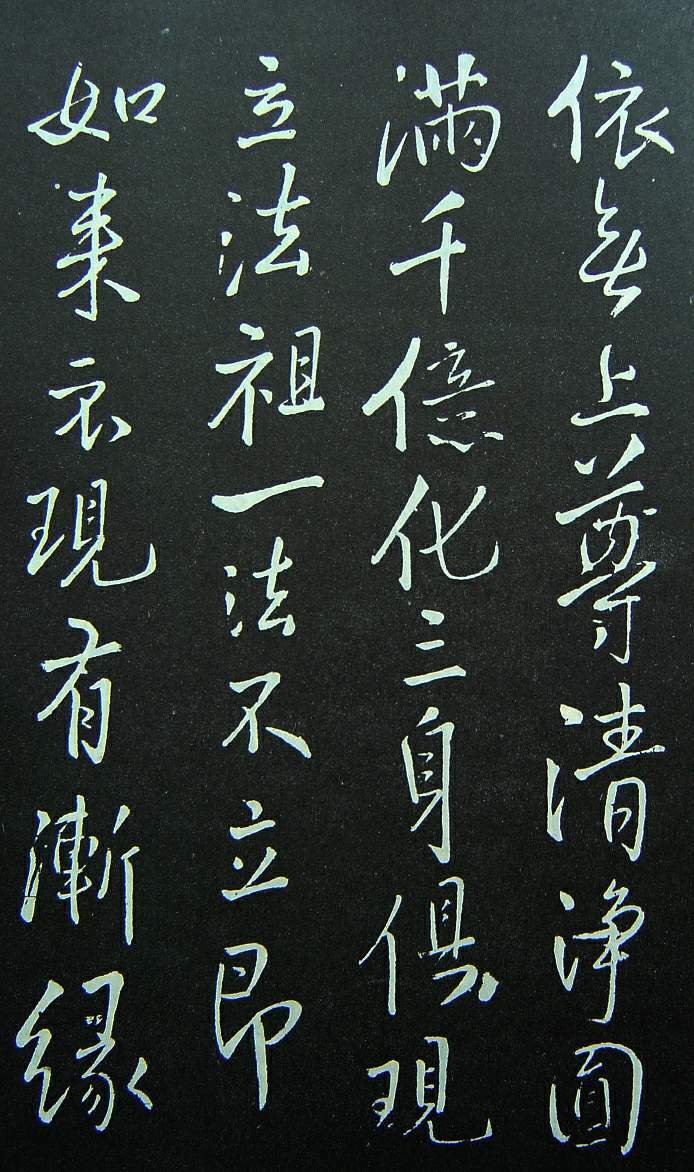 依無上尊清淨圓
滿千億化三身俱現
立法祖一法不立即
如来示現有漸緣